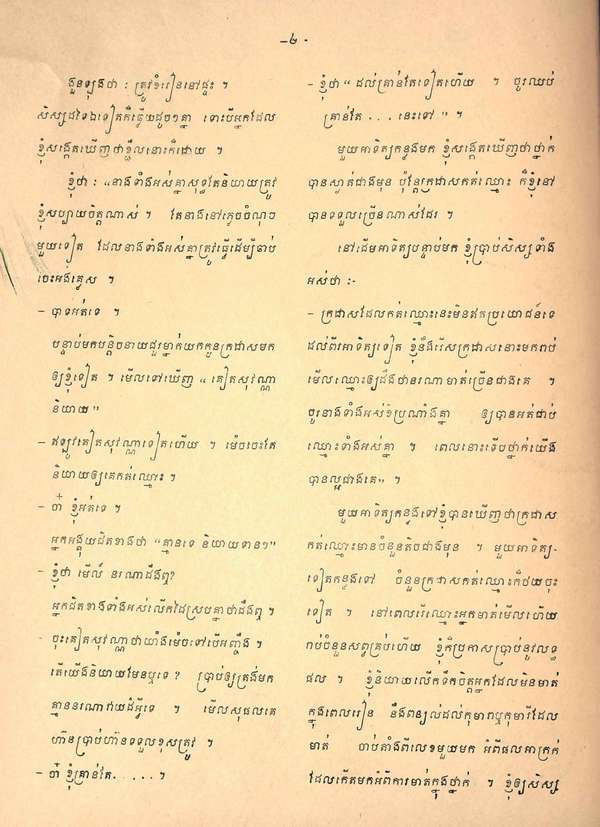 -៤-
ងួនឡុងថា : ត្រូវខំរៀននៅផ្ទះ ។
សិស្សដទៃឯទៀតក៏ធ្វើយដូចៗគ្នា ទោះបីអ្នកដែល
ខ្ញុំសង្កេតឃើញថាខ្ជិលនោះក៏ដោយ ។
ខ្ញុំថា : «នាងទាំងអស់គ្នាសុទ្ធតែនិយាយត្រូវ
ខ្ញុំសប្បាយចិត្តណាស់ ។ តែនាងនៅភ្លេចចំណុច
មួយទៀត ដែលនាងទាំងអស់គ្នាត្រូវធ្វើដើម្បីឆាប់
ចេះអង់គ្លេស ។
- បាទអត់ទេ ។
បន្ទាប់មកបន្តិចនាយជួរម្នាក់យកកូនក្រដាសមក
ឲ្យខ្ញុំទៀត ។ មើលទៅឃើញ «គៀតសុវណ្ណា
និយាយ»
- ឥឡូវគៀតសុវណ្ណាទៀតហើយ ។ ម៉េចចេះតែ
និយាយឲ្យគេកត់ឈ្មោះ ។
- ចា៎ ខ្ញុំអត់ទេ ។
អ្នកអង្គុយជិតខាងថា "គ្មានទេ និយាយទាន់ៗ"
- ខ្ញុំថា មើល៍ នរណាដឹងឮ?
អ្នកជិតខាងទាំងអស់លើកដៃស្របគ្នាថាដឹងឮ ។
- ចុះគៀតសុវណ្ណាថាយ៉ាងម៉េចទៅបើអញ្ចឹង ។
តើយើងនិយាយមែនឬទេ ? ប្រាប់ឲ្យត្រង់មក
គ្មាននរណាវាយដំអ្វីទេ ។ មើលសុផលគេ
ហ៊ានប្រាប់ហ៊ានទទួលខុសត្រូវ ។
- ចា៎ ខ្ញុំគ្រាន់តែ. . . . . ។
- ខ្ញុំថា "ដល់គ្រាន់តែទៀតហើយ ។ ចូរឈប់
គ្រាន់តែ . . . នេះទៅ" ។
មួយអាទិត្យកន្លងមក ខ្ញុំសង្កេតឃើញថាថ្នាក់
បានស្ងាត់ជាងមុន ប៉ុន្តែក្រដាសកត់ឈ្មោះ ក៏ខ្ញុំនៅ
បានទទួលច្រើនណាស់ដែរ ។
នៅដើមអាទិត្យបន្ទាប់មក ខ្ញុំប្រាប់សិស្សទាំង
អស់ថា :-
- ក្រដាសដែលកត់ឈ្មោះនេះមិនឥតប្រយោជន៍ទេ
ដល់ពីរអាទិត្យទៀត ខ្ញុំនឹងរើសក្រដាសនោះមករាប់
មើលឈ្មោះឲ្យដឹងថានរណាមាត់ច្រើនជាងគេ ។
ចូរនាងទាំងអស់ខំប្រណាំងគ្នា ឲ្យបានអត់ជាប់
ឈ្មោះទាំងអស់គ្នា ។ ពេលនោះទើបថ្នាក់យើង
បានល្អជាងគេ» ។
មួយអាទិត្យកន្លងទៅខ្ញុំបានឃើញថាក្រដាស
កត់ឈ្មោះមានចំនួនតិចជាងមុន ។ មួយអាទិត្យ-
ទៀតកន្លងទៅ ចំនួនក្រដាសកត់ឈ្មោះក៏ថយចុះ
ទៀត ។ នៅពេលរើឈ្មោះអ្នកមាត់មើលហើយ
រាប់ចំនួនសព្វគ្រប់ហើយ ខ្ញុំក៏ប្រកាសប្រាប់នូវលទ្ធ
ផល ។ ខ្ញុំនិយាយលើកទឹកចិត្តអ្នកដែលមិនមាត់
ក្នុងពេលរៀន នឹងពន្យល់ដល់កុមារាឬកុមារីដែល
មាត់ ចាប់តាំងពីលេខមួយមក អំពីផលអាក្រក់
ដែលកើតមកអំពីការមាត់ក្នុងថ្នាក់ ។ ខ្ញុំឲ្យសិស្ស